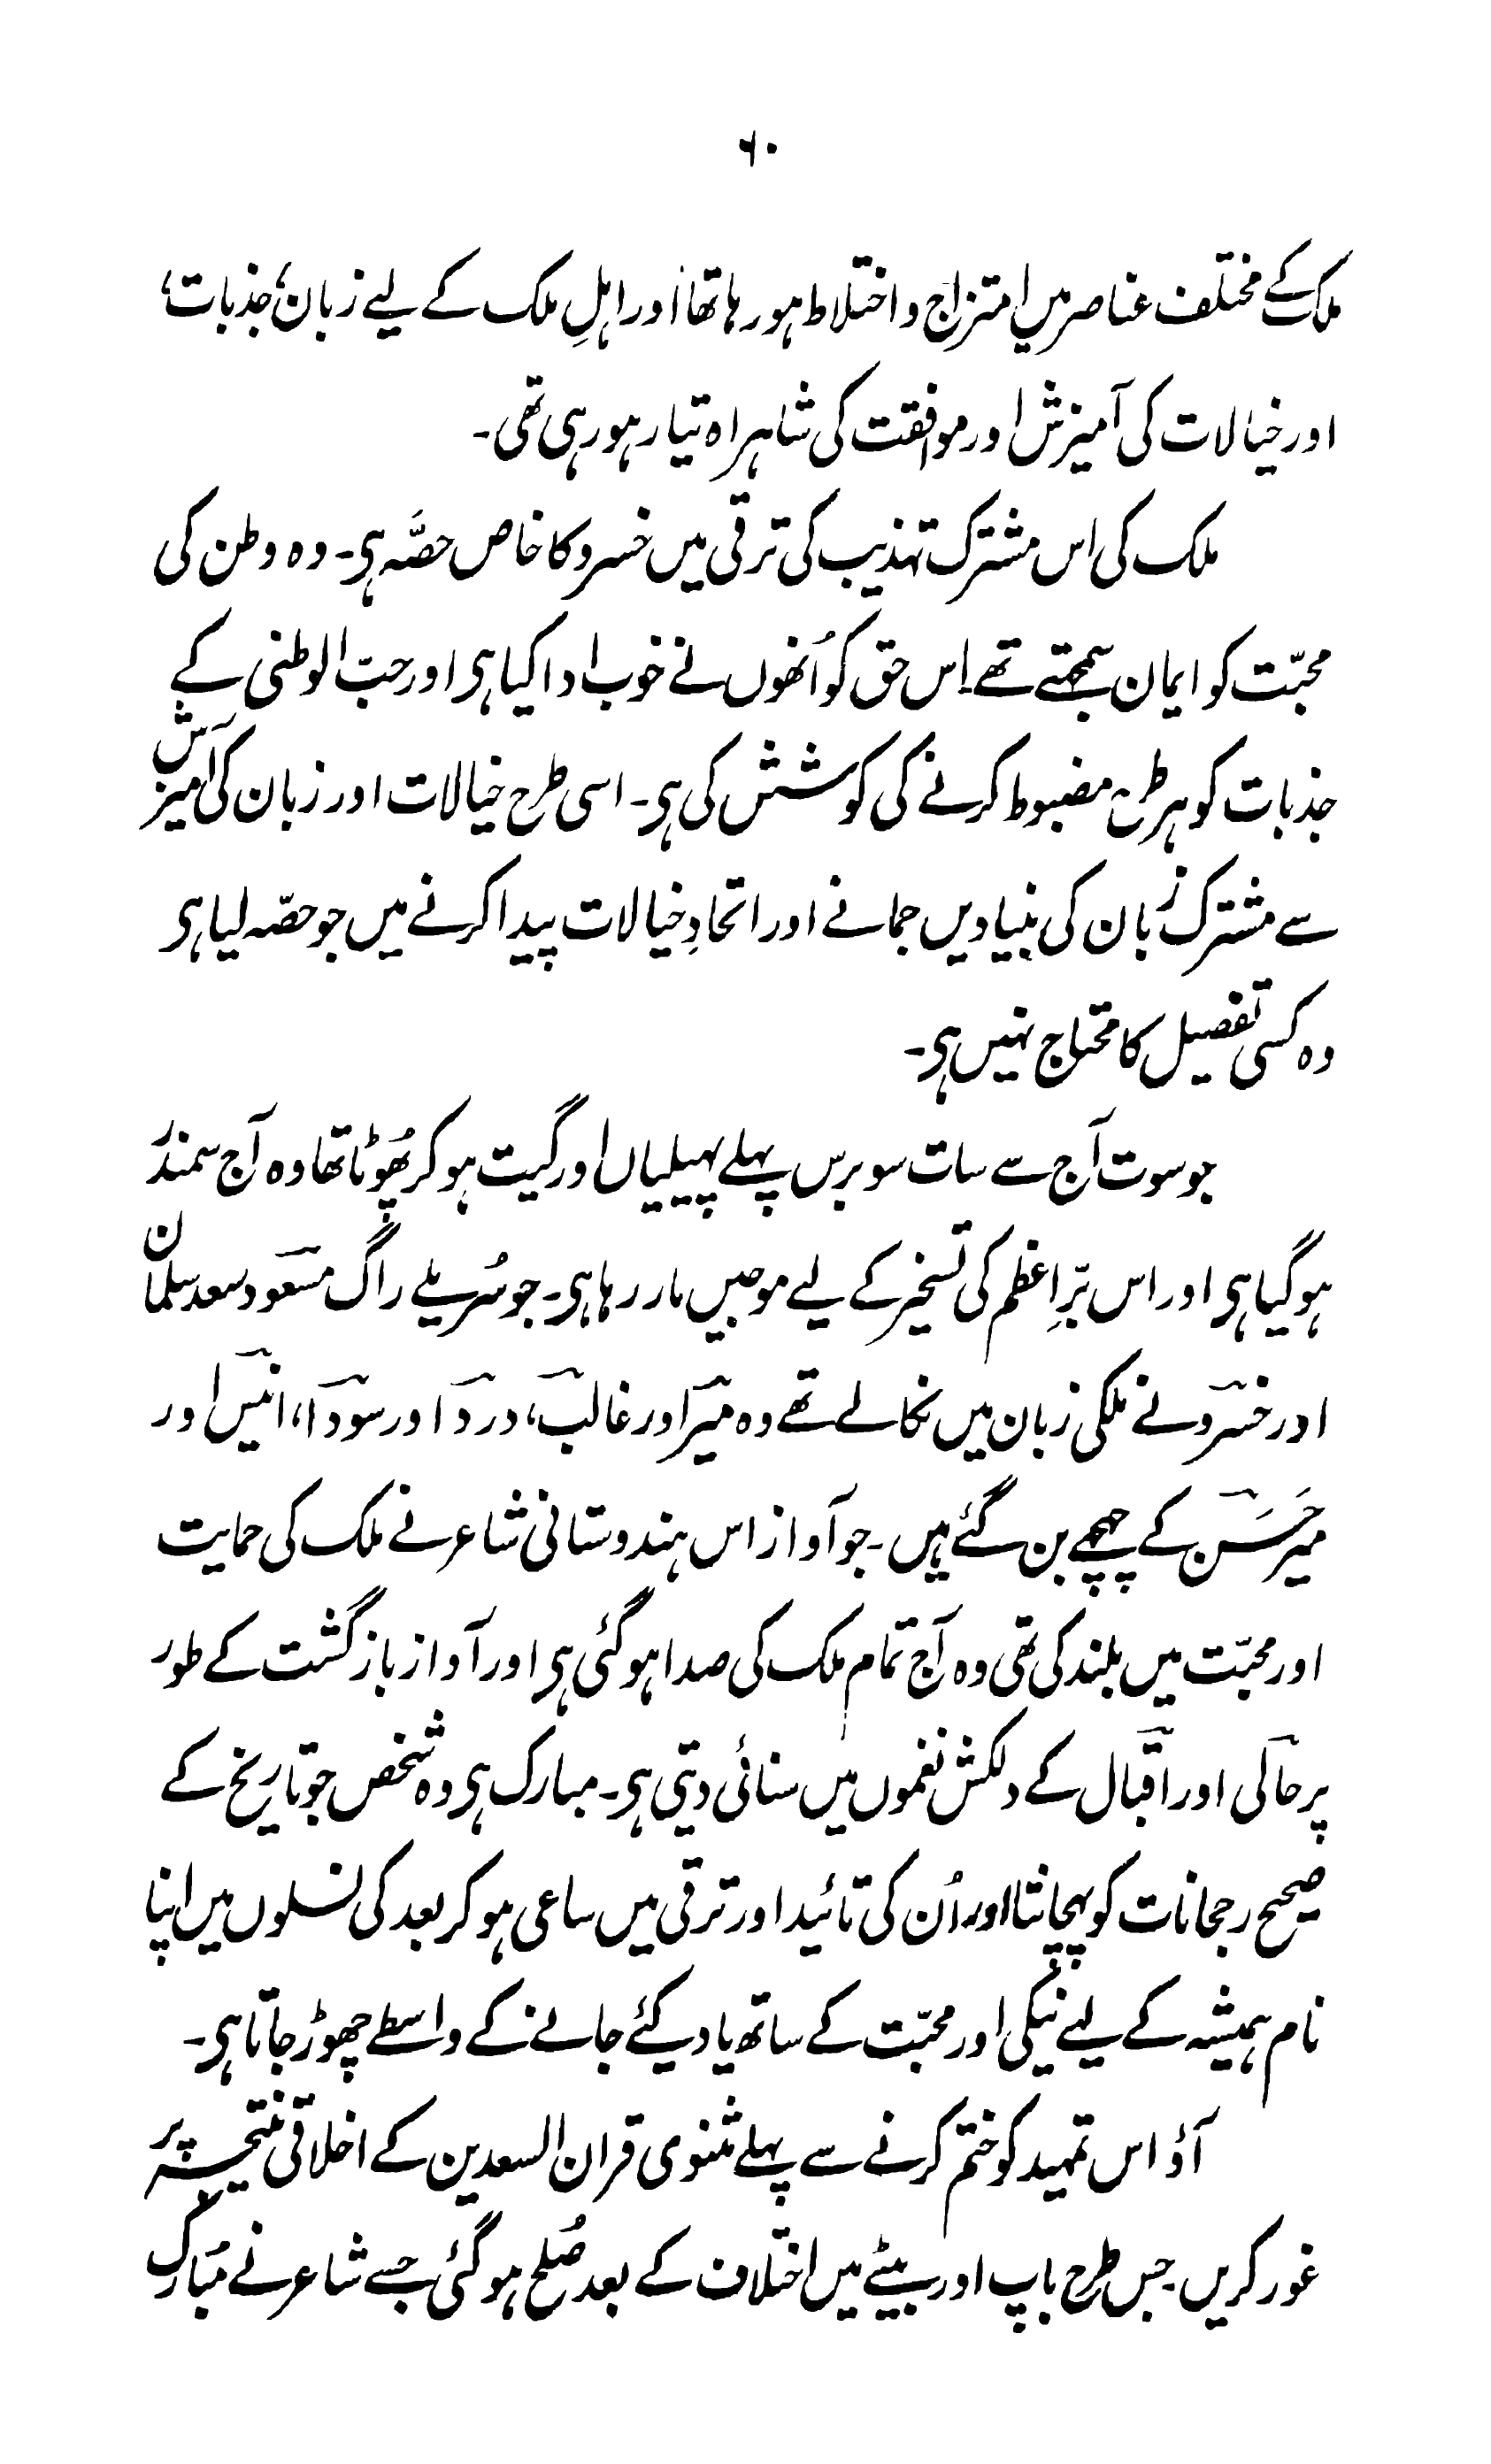 ۶۰
ملک کے مختلف عناصر میں امتزاج و اختلاط ہو رہا تھا اور اہلِ ملک کے لیے زبان، جذبات،
اور خیالات کی آمیزش اور موافقت کی شاہراہ تیار ہو رہی تھی۔
ملک کی اس مشترک تہذیب کی ترقی میں خسرو کا خاص حصّہ ہی۔ وہ وطن کی
محبّت کو ایمان سمجھتے تھے۔ اِس حق کو اُنھوں نے خوب ادا کیا ہی اور حبّ الوطنی کے
جذبات کو ہر طرح مضبوط کرنے کی کوشش کی ہی۔ اسی طرح خیالات اور زبان کی آمیزش
سے مشترک زبان کی بنیادیں جمانے اور اتحادِ خیالات پیدا کرنے میں جو حصّہ لیا ہی
وہ کسی تفصیل کا محتاج نہیں ہی۔
جو سوت آج سے سات سو برس پہلے پہیلیاں اور گیت ہو کر پھُوٹا تھا وہ آج سمندر
ہو گیا ہی اور اس برِّاعظم کی تسخیر کے لیے موجیں مار رہا ہی۔ جو سُریلے راگ مسعود سعد سلمان
اور خسرو نے ملکی زبان میں نکالے تھے وہ میر اور غالب، درد اور سودا، انیس اور
میر حَسَن کے چہچہے بن گئے ہیں۔ جو آواز اس ہندوستانی شاعر نے ملک کی حمایت
اور محبّت میں بلند کی تھی وہ آج تمام ملک کی صدا ہو گئی ہی اور آواز بازگشت کے طور
پر حالی اور اقبال کے دلکش نغموں میں سنائی دیتی ہی۔ مبارک ہی وہ شخص جو تاریخ کے
صحیح رجحانات کو پہچانتا اور اُن کی تائید اور ترقی میں ساعی ہو کر بعد کی نسلوں میں اپنا
نام ہمیشہ کے لیے نیکی اور محبّت کے ساتھ یاد کیئے جانے کے واسطے چھوڑ جاتا ہی۔
آؤ اس تمہید کو ختم کرنے سے پہلے مثنوی قران السعدین کے اخلاقی نتیجہ پر
غور کریں۔ جس طرح باپ اور بیٹے میں اختلاف کے بعد صُلح ہو گئی جسے شاعر نے مُبارک